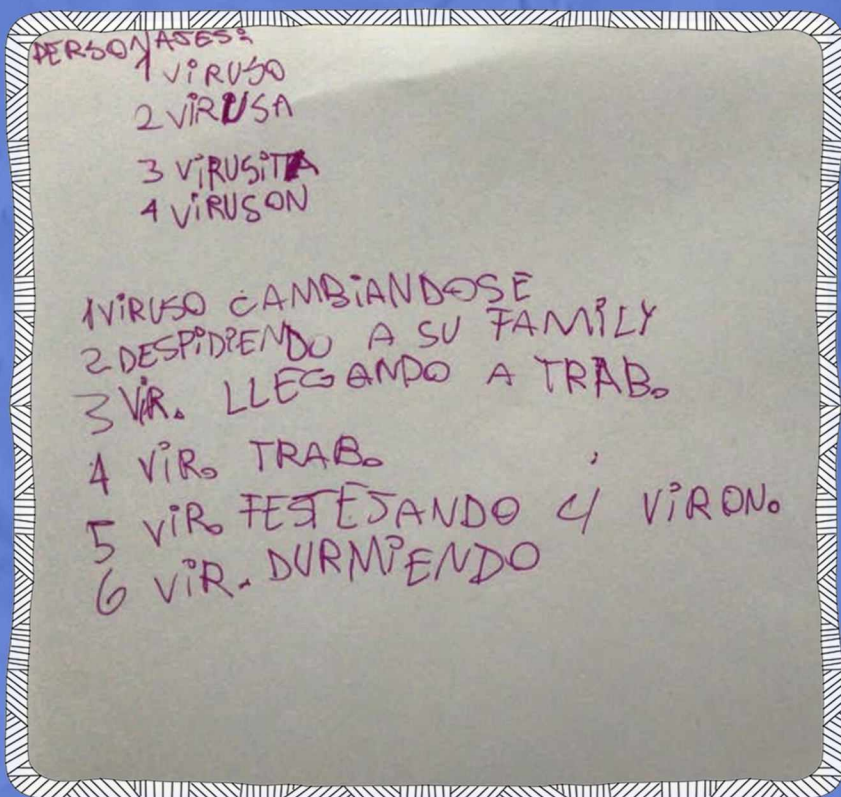 PERSONAJES:
1 ViRUSO
2 ViRUSA
3 ViRUSiTA
4 ViRUSON
1 ViRUSO CAMBiANDOSE
2 DESPiDiENDO A SU FAMiLY
3 ViR. LLEGANDO A TRAB.
4 ViR. TRAB.
5 ViR. FESTEJANDO C/ ViRON.
6 ViR. DURMiENDO